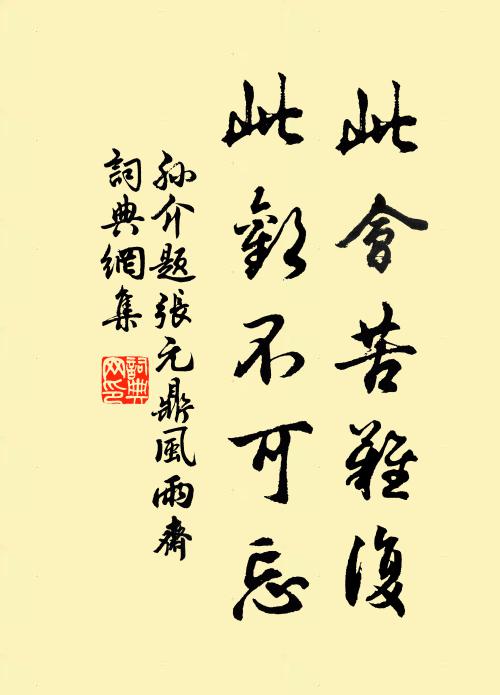 此會苦難復
此歡不可忘
孫介題張元鼎風雨齋
詞典網集
詞典網印